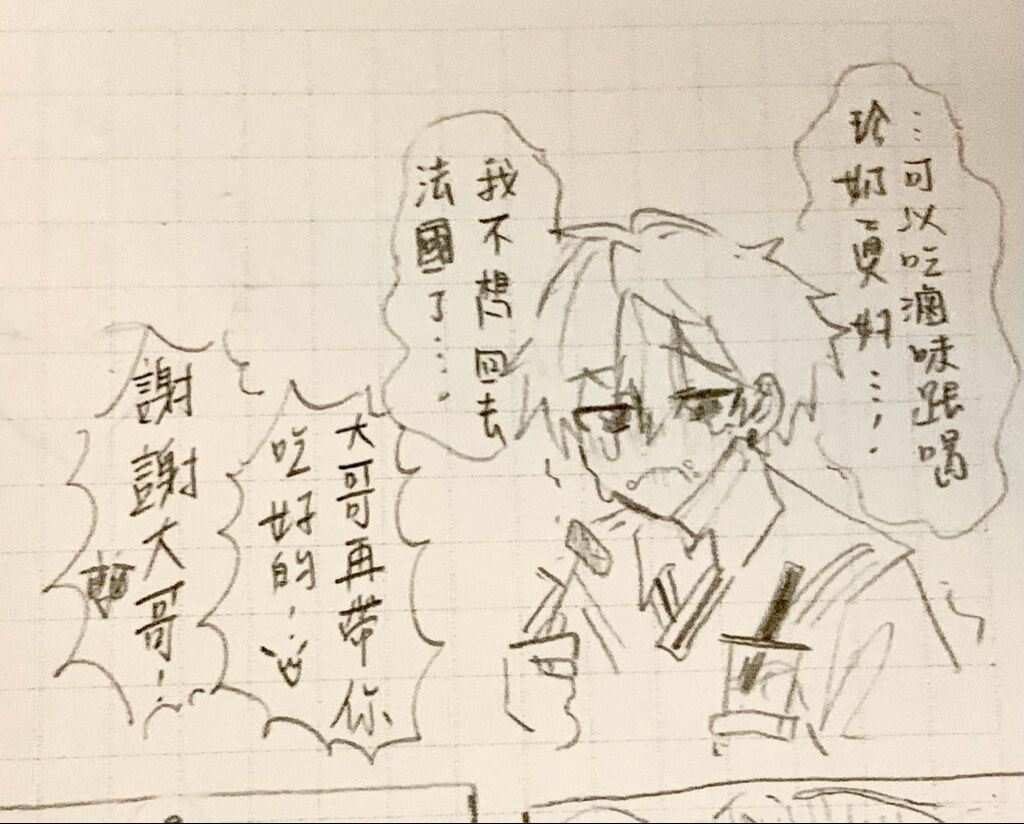 …可以吃滷味跟喝
珍奶真好…．
我不想回去
法國了…．
大哥再帶你
吃好的！
謝謝大哥！